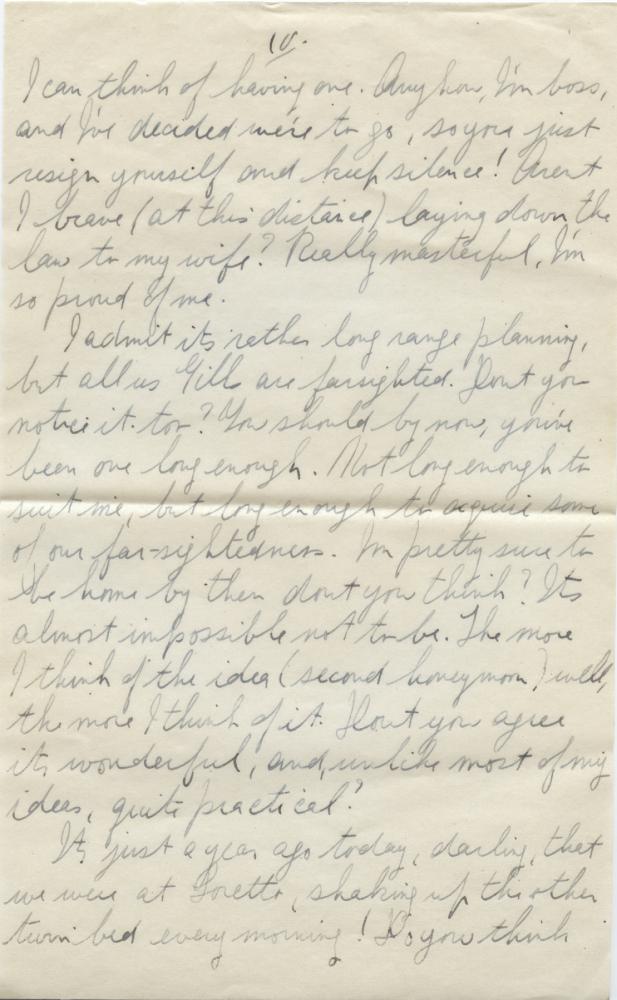 10.
I can think of having one. Anyhow, I'm boss,
and I've decided we're to go, so you just
resign yourself and keep silence! Arent
I brave (at this distance) laying down the
law to my wife? Really masterful, I'm
so proud of me.
I admit its rather long range planning,
but all us Gills are farsighted. Dont you
notice it too? You should by now, you've
been one long enough. Not long enough to
suit me, but long enough to acquire some
of our far-sightedness. I'm pretty sure to
be home by then dont you think? Its
almost impossible not to be. The more
I think of the idea (second honeymoon) well,
the more I think of it. Dont you agree
its wonderful, and, unlike most of my
ideas, quite practical?
Its just a year ago today, darling, that
we were at Loretto, shaking up the other
twin bed every morning! Do you think